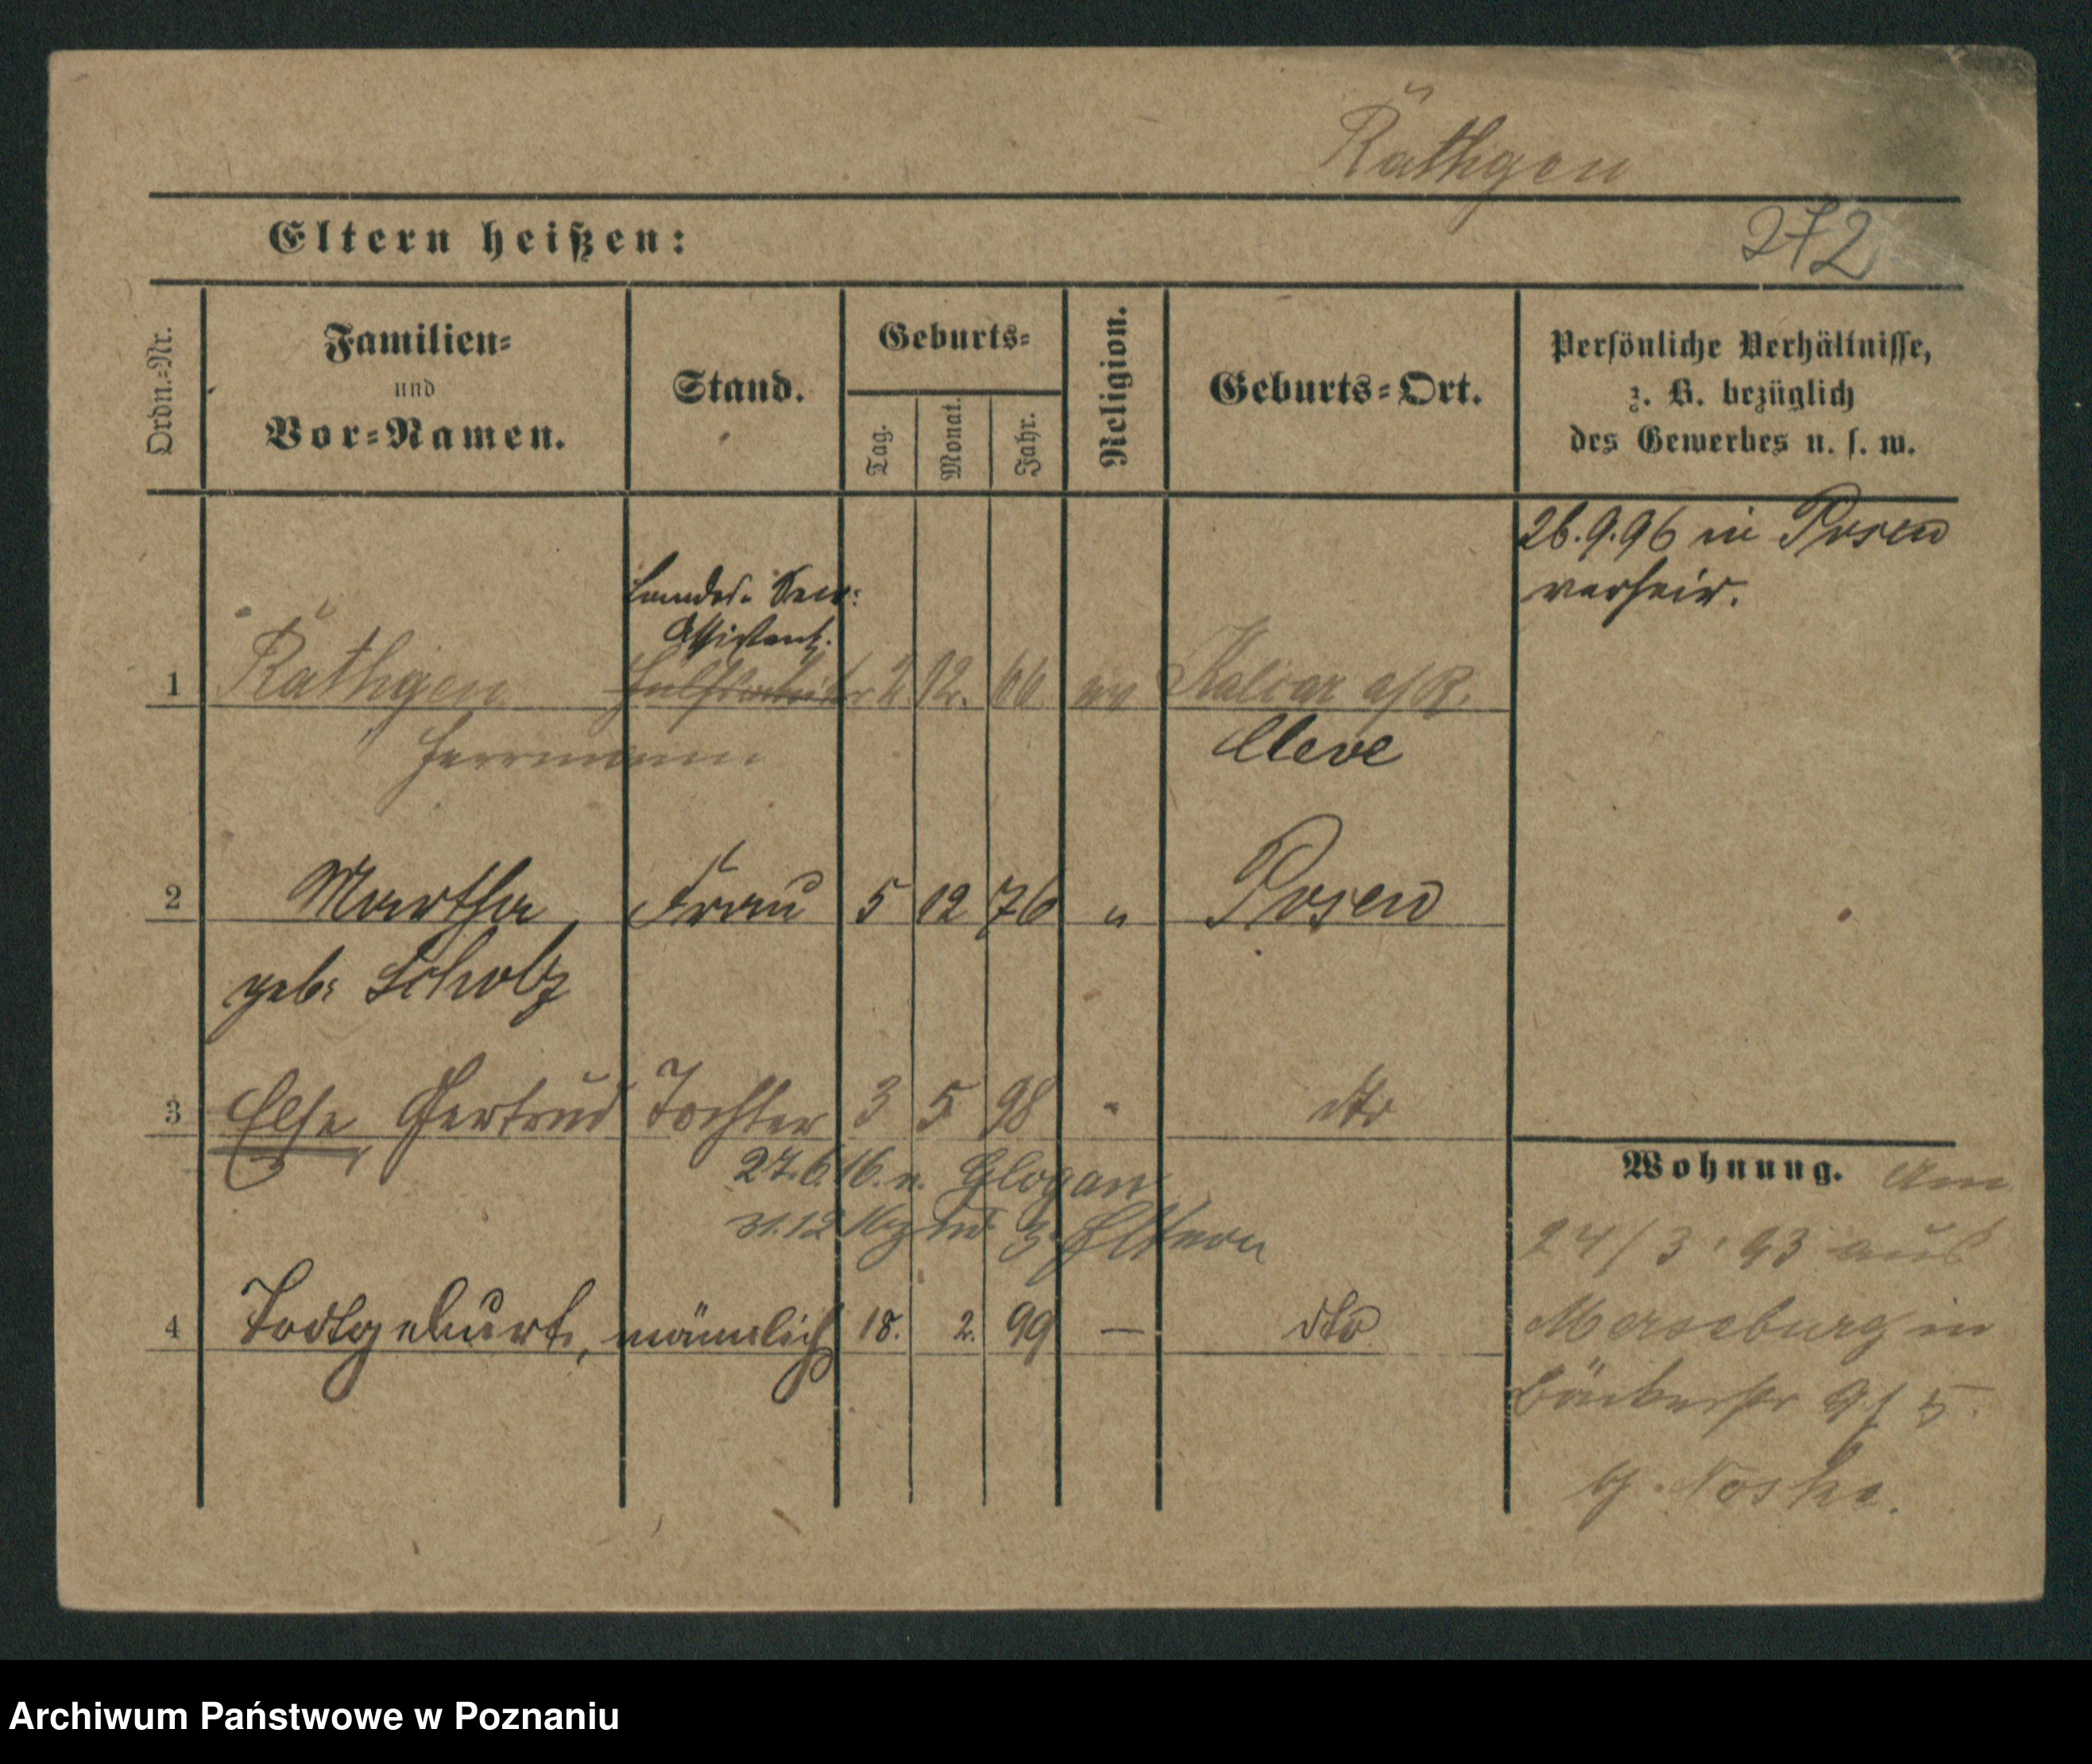 Räthgen
Eltern heißen:
272
Ordn.-Nr.
Familien-
und
Vor-Namen.
Stand.
Geburts-
Tag.
Monat.
Jahr.
Religion.
Geburts-Ort.
Persönliche Verhältnisse,
z. B. bezüglich
des Gewerbes u. s. w.
26.9.96 in Posen
verheir.
Landes-
Assistent.
1 Räthgen 2 12. 66 ev Kalcar a/R.
Herrmann Cleve
2 Martha, Frau 5 12 76 " Posen
geb: Scholz
3 Else, Gertrud Tochter 3 5 98 " dto
27.6.16. n. Glogau
31.12 z. Eltern
4 Todtgeburt, männlich 18. 2. 99 — dto
Wohnung. Am
24/3.93 aus
Merseburg in
Bäckerstr 5.